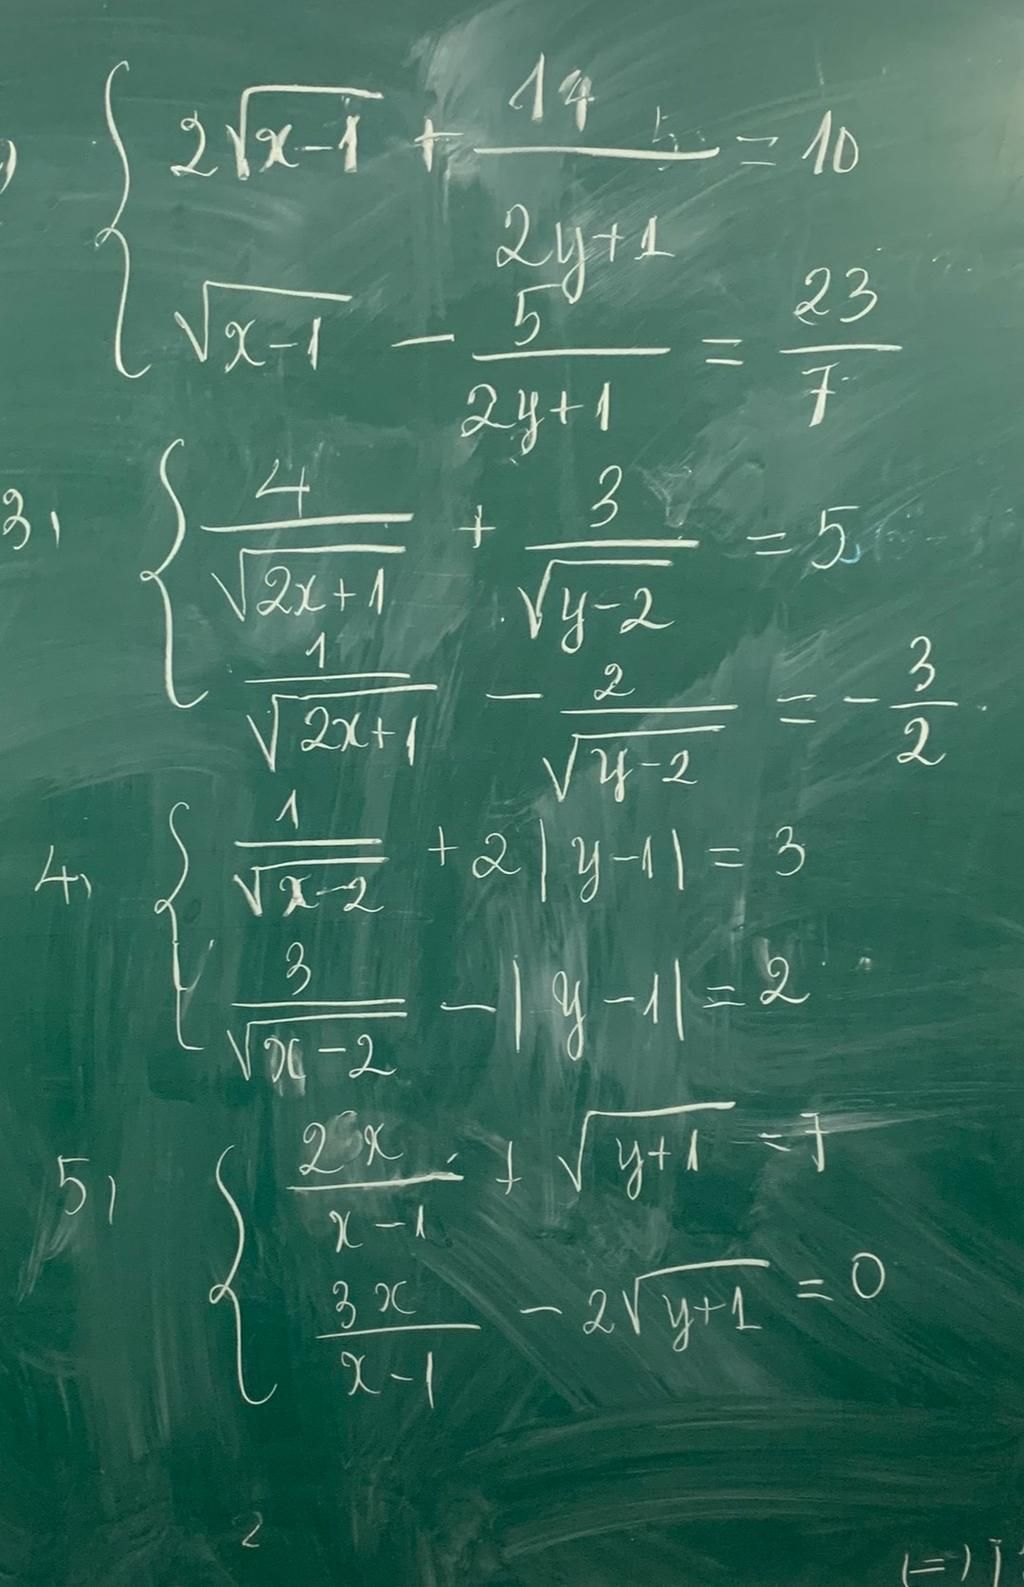 ) { 2√(x-1) + 14/(2y+1) = 10
√(x-1) - 5/(2y+1) = 23/7
3, { 4/√(2x+1) + 3/√(y-2) = 5
1/√(2x+1) - 2/√(y-2) = -3/2
4, { 1/√(x-2) + 2|y-1| = 3
3/√(x-2) - |y-1| = 2
5, { 2x/(x-1) + √(y+1) = 7
3x/(x-1) - 2√(y+1) = 0
2
(=)